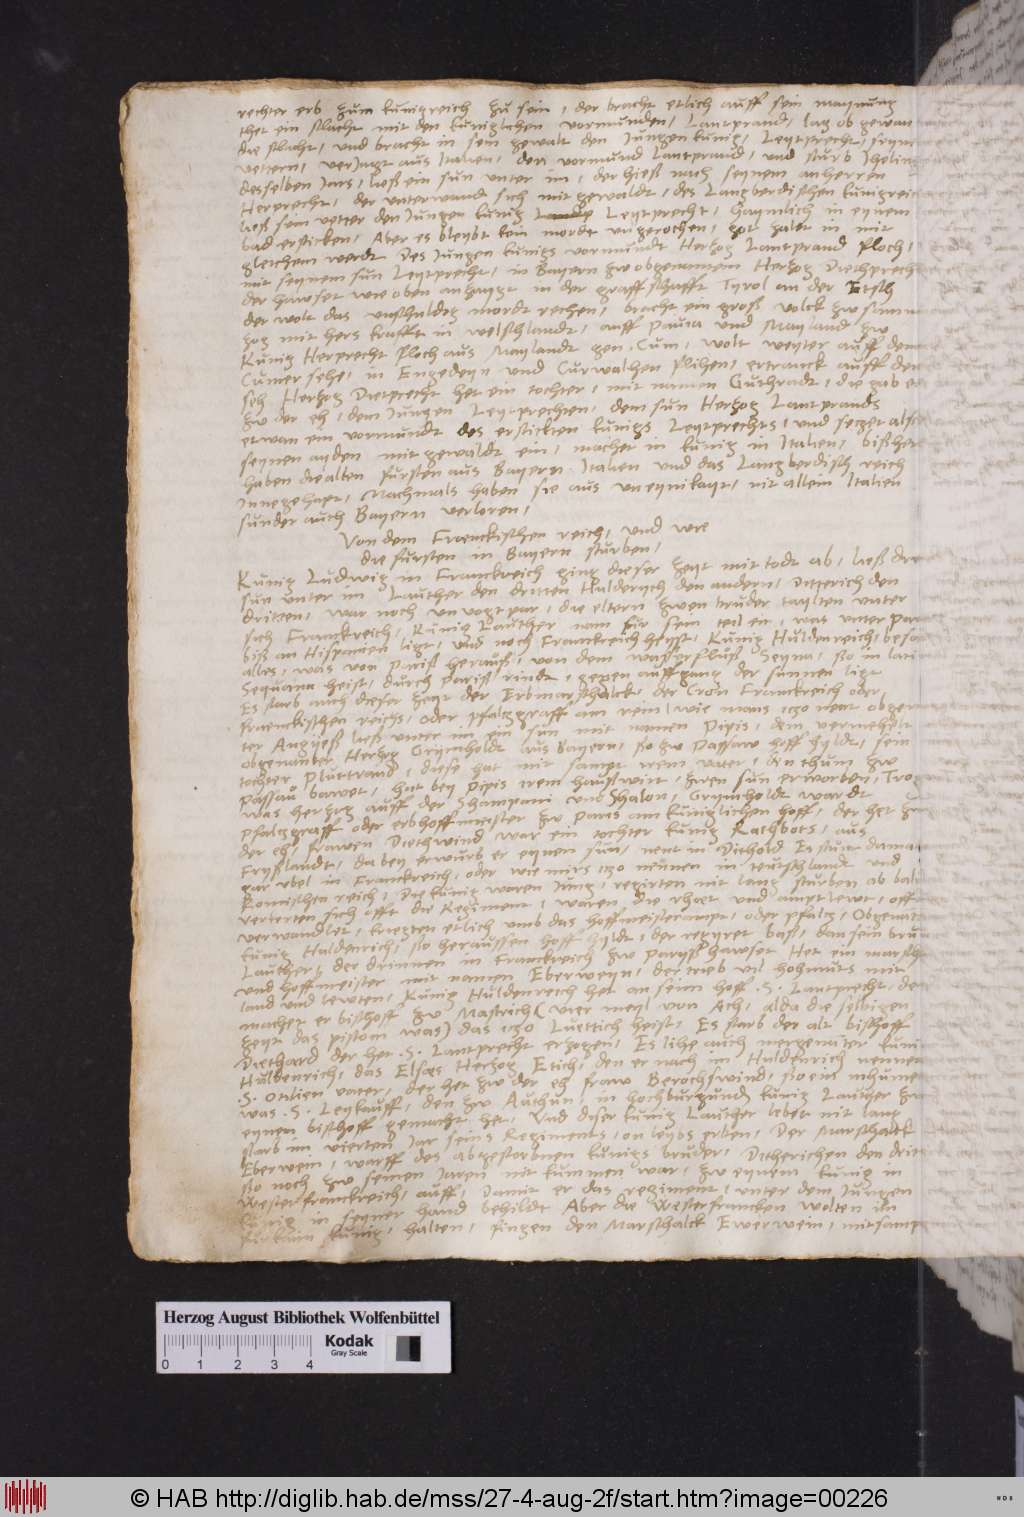 rechter erb zum kunigreich zu sein, der bracht etlich auff sein maynung
thet ein slacht mit den kuniglichen vormunden, Lantprand, lag ob gewan
die slacht, und bracht in sein gewalt den Jungen kunig, Leytprecht, seyn
vettern, verJagt aus Italien, den vormund Lantprand, und sturb Jheling
desselben Jars, ließ ein sun unter im, der hieß nach seynem anherren
Herprecht, der unterwand sich mit gewaldt, des Langberdischen kunigreich
ließ sein vetter den Jungen kunig Leytprecht, haymlich in eynem
bad ersticken, Aber es bleybt kein mordt ungerochen, got zalet in mit
gleichem werdt Des Jungen kunigs vormundt Hertzog Lantprand floch,
mit seynem sun Leytprecht, in Bayern zw obgenanntem Hertzog Diethprecht
der hawset wie oben anzaygt in der graffschafft Tyrol an der Etsch
der wolt das unschuldig mordt rechen, bracht ein groß volck zw
zog mit hers krafft in welschlandt, auff pavia und Mayland zw
Kunig Herprecht floch aus Maylandt gen Cum, wolt weyter auff dem
Cumer sehe, in Engedeyn und Curwalhen flihen, ertranck auff dem
seh Hertzog Dietprecht het ein tochter, mit namen Guthradt, die gab er
zw der eh, dem Jungen Leytprechten, dem sun Hertzog Lantprands
etwan ein vormundt des erstickten kunigs Leytprechts, und setzet also
seynen ayden mit gewaldt ein, machet in kunig in Italien, bißher
haben die alten fursten aus Bayern Italien und das Langberdisch reich
Innegehapt, Nachmals haben sie aus uneynikayt, nit allein Italien
sunder auch Bayern verloren,
Von dem Franckischen reich, und wie
die fursten in Bayern sturben,
Kunig Ludwig in Franckreich ging dieser zeyt mit todt ab, ließ drei
sun unter im Lauther den dritten Hulderych den andern, Ditterich den
dritten, war noch unvogtpar, die eltern zwen bruder taylten unter
sich Franckreich, Kunig Lauther nam fur sein teil ein, was unter Paris
biß an Hispanien ligt, und noch Franckreich heyst, Kunig Huldenreich, besas
alles, was von Pariß herauß, von dem wasserfluß Segna, so in latein
Sequana heist, durch Pariß rindt, gegen auffgang der sunnen ligt
Es starb auch dieser zeyt der Erbmarschalck, der Cron Franckreich oder
franckischen reichs, oder pfaltzgraff am rein, wie mans itzo nent obge
ter Angiseß ließ unter im ein sun mit namen Pipis, dem vermehelt
obgenanter Hertzog Grymholdt aus Bayern, so zw Passaw hoff hyldt, sein
tochter Pluttrand, diese hat mit sampt irem vater, den thum zw
passau bawet, hat bey Pipis irem haußwirt, zwen sun erworben, Trog
was hertzog auff der Schampani und Schalon, Grymholdt wardt
pfaltzgraff oder erbhoffmeister zw Paris am kuniglichen hoff, der het zu
der eh frawen Diethwind, war ein tochter kunig Rathbots, aus
Fryßlandt, da bey erwurb er eynen sun, nent in Dithold Es stunt damals
gar ubel in Franckreich, oder wie mirs itzo nennen in teutschlandt und
Romischen reich, Die kunig waren Jung, regirten nit lang sturben ab bald
verkerten sich offt die Regiment, waren die rhaet und amptlewt, offt
verwandlet, kriegten etlich umb das hoffmeisterampt, oder pfaltz, Obgenanter
kunig Huldenrich, so heraussen hoff hyldt, der regyret baß, dan sein bruder
Lauther, der drinnen in Franckreich zw Paryß hawset Het ein marschalck
und hoffmeister mit namen Eberweyn, der trieb vil hohmuts mit
land und lewten, Kunig Huldenreich het an seim hoff S. Lantprecht, den
machet er bischoff zw Mastrich (vier meyl von Ach, alda die selbigen
zeyt das pistom was) das itzo Luettich heist, Es starb der alt bischoff
Diethard der het S. Lantprecht erzogen, Es lihe auch mergenanter kunig
Huldenrich, das Elsas Hertzog Etich, den er nach im Huldenrich nennet
S. Otilien vater, der het zw der eh fraw Berochswind, so ein mhume
was S. Leykauff, den zw Authun, in hochburgund, kunig Lauther zw
eynem bischoff gemacht het, Und diser kunig Lauther lebet nit lang
starb im vierten Jar seins Regiments, on leybs erben, Der Marschalck
Eberwein, warff des abgestorbnen kunigs bruder, Ditherichen den dritten
so noch zw seinen Jaren nit kummen war, zw eynem kunig in
Westerfranckreich, auff, Damit er das regiment, unter dem Jungen
kunig in seyner hand behildt Aber die Westerfrancken wolten in
fur kain kunig, halten, fingen den Marschalck Ewerwein, mitsampt
Herzog August Bibliothek Wolfenbüttel
Kodak
Gray Scale
0 1 2 3 4
© HAB http://diglib.hab.de/mss/27-4-aug-2f/start.htm?image=00226